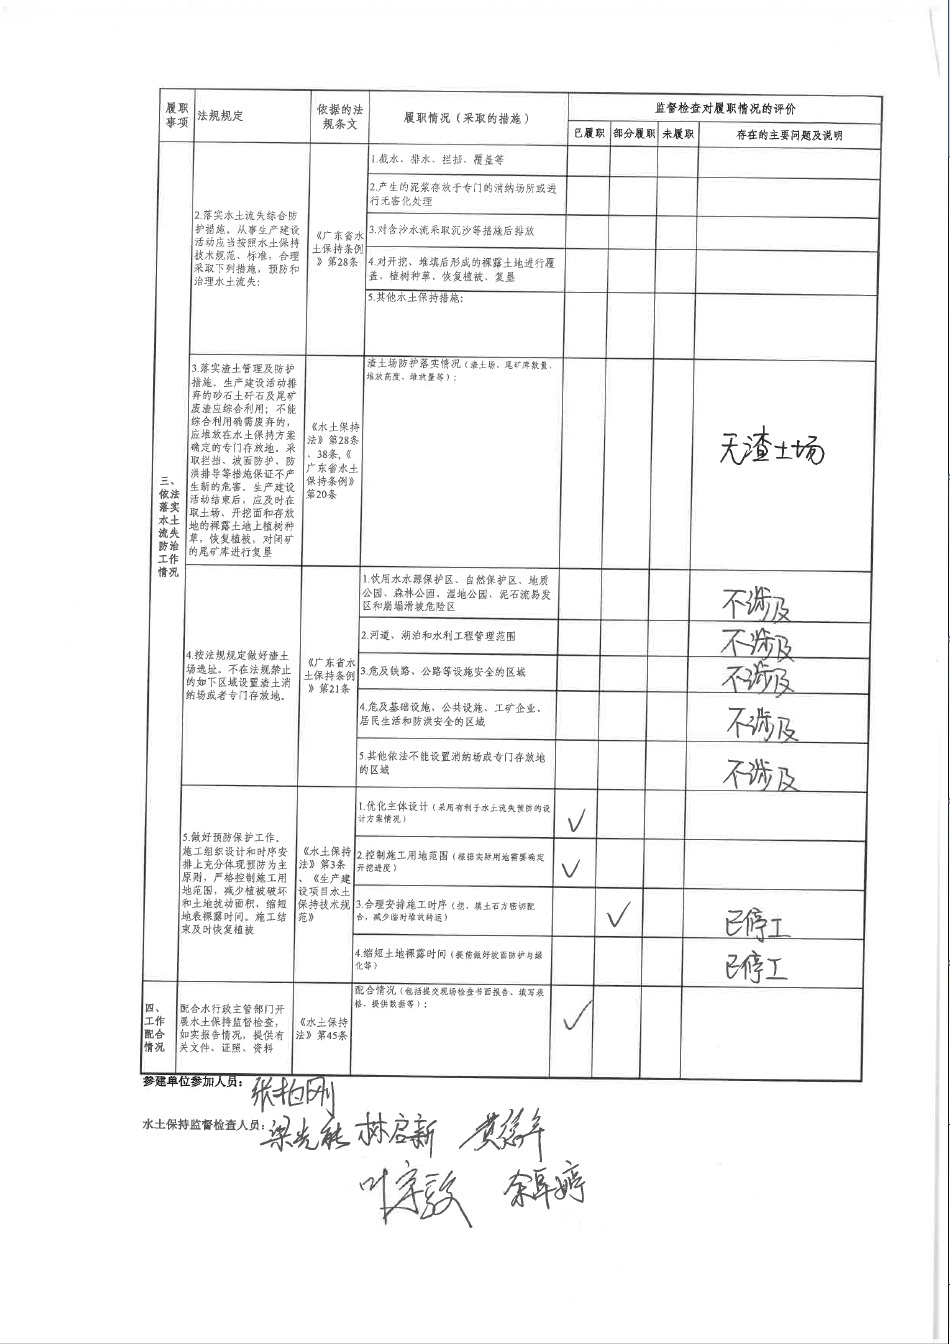 履职事项 法规规定 依据的法规条文 履职情况（采取的措施） 监督检查对履职情况的评价
已履职 部分履职 未履职 存在的主要问题及说明
三、依法落实水土流失防治工作情况
2.落实水土流失综合防
护措施。从事生产建设
活动应当按照水土保持
技术规范、标准，合理
采取下列措施，预防和
治理水土流失：
《广东省水
土保持条例
》第28条
1.截水、排水、拦挡、覆盖等
2.产生的泥浆存放于专门的消纳场所或进
行无害化处理
3.对含沙水流采取沉沙等措施后排放
4.对开挖、堆填后形成的裸露土地进行覆
盖、植树种草、恢复植被、复垦
5.其他水土保持措施：
3.落实渣土管理及防护
措施。生产建设活动排
弃的砂石土矸石及尾矿
废渣应综合利用；不能
综合利用确需废弃的，
应堆放在水土保持方案
确定的专门存放地。采
取拦挡、坡面防护、防
洪排导等措施保证不产
生新的危害。生产建设
活动结束后，应及时在
取土场、开挖面和存放
地的裸露土地上植树种
草，恢复植被，对闭矿
的尾矿库进行复垦
《水土保持
法》第28条
、38条，《
广东省水土
保持条例》
第20条
渣土场防护落实情况（渣土场、尾矿库数量、
堆放高度、堆放量等）：
无渣土场
4.按法规规定做好渣土
场选址。不在法规禁止
的如下区域设置渣土消
纳场或者专门存放地。
《广东省水
土保持条例
》第21条
1.饮用水水源保护区、自然保护区、地质
公园、森林公园、湿地公园、泥石流易发
区和崩塌滑坡危险区
不涉及
2.河道、湖泊和水利工程管理范围
不涉及
3.危及铁路、公路等设施安全的区域
不涉及
4.危及基础设施、公共设施、工矿企业、
居民生活和防洪安全的区域
不涉及
5.其他依法不能设置消纳场或专门存放地
的区域
不涉及
5.做好预防保护工作。
施工组织设计和时序安
排上充分体现预防为主
原则，严格控制施工用
地范围，减少植被破坏
和土地扰动面积，缩短
地表裸露时间。施工结
束及时恢复植被
《水土保持
法》第3条
、《生产建
设项目水土
保持技术规
范》
1.优化主体设计（采用有利于水土流失预防的设
计方案情况）
✓
2.控制施工用地范围（根据实际用地需要确定
开挖进度）
✓
3.合理安排施工时序（挖、填土石方密切配
合，减少临时堆放转运）
✓ 已停工
4.缩短土地裸露时间（提前做好坡面防护与绿
化等）
已停工
四、工作配合情况
配合水行政主管部门开
展水土保持监督检查，
如实报告情况，提供有
关文件、证照、资料
《水土保持
法》第45条
配合情况（包括提交现场检查书面报告、填写表
格、提供数据等）：
✓
参建单位参加人员：张柏刚
水土保持监督检查人员：梁光能 林启新